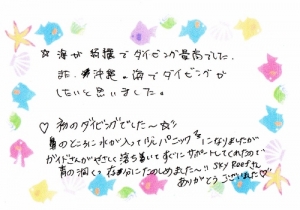 ☆ 海が綺麗でダイビング最高でした。
是非、沖縄の海でダイビングが
したいと思いました。
♡ 初のダイビングでした〜☆彡
鼻のところに水が入って少しパニックになりましたが
ガイドさんがやさしく落ち着いてすぐにサポートしてくれたので
青の洞くつ 十分にたのしめました〜!! Sky Reefさん
ありがとうございました♡